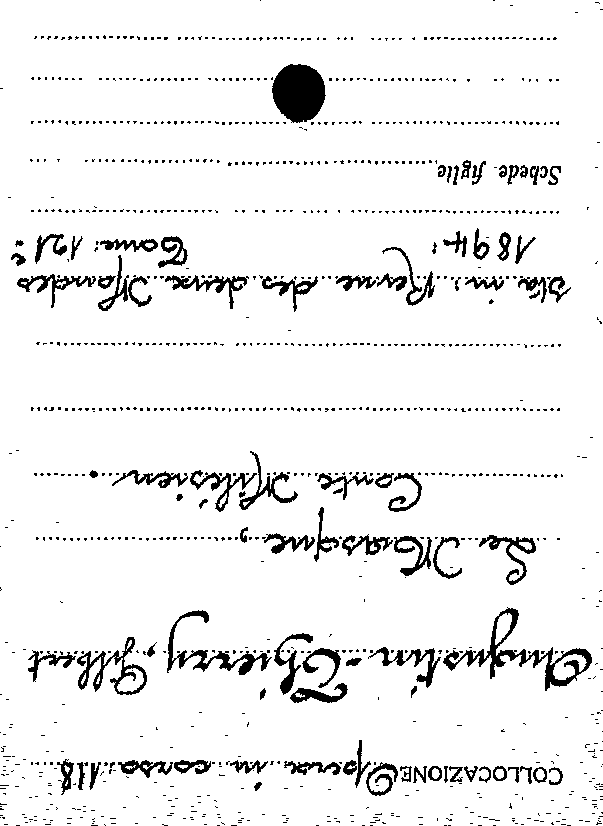 COLLOCAZIONE Opera in corso 118
Augustin-Thierry, Gilbert
Le Masque,
Conte Milésien.
sta in: Revue des deux Mondes
1894: Tome: 121º
Schede figlie